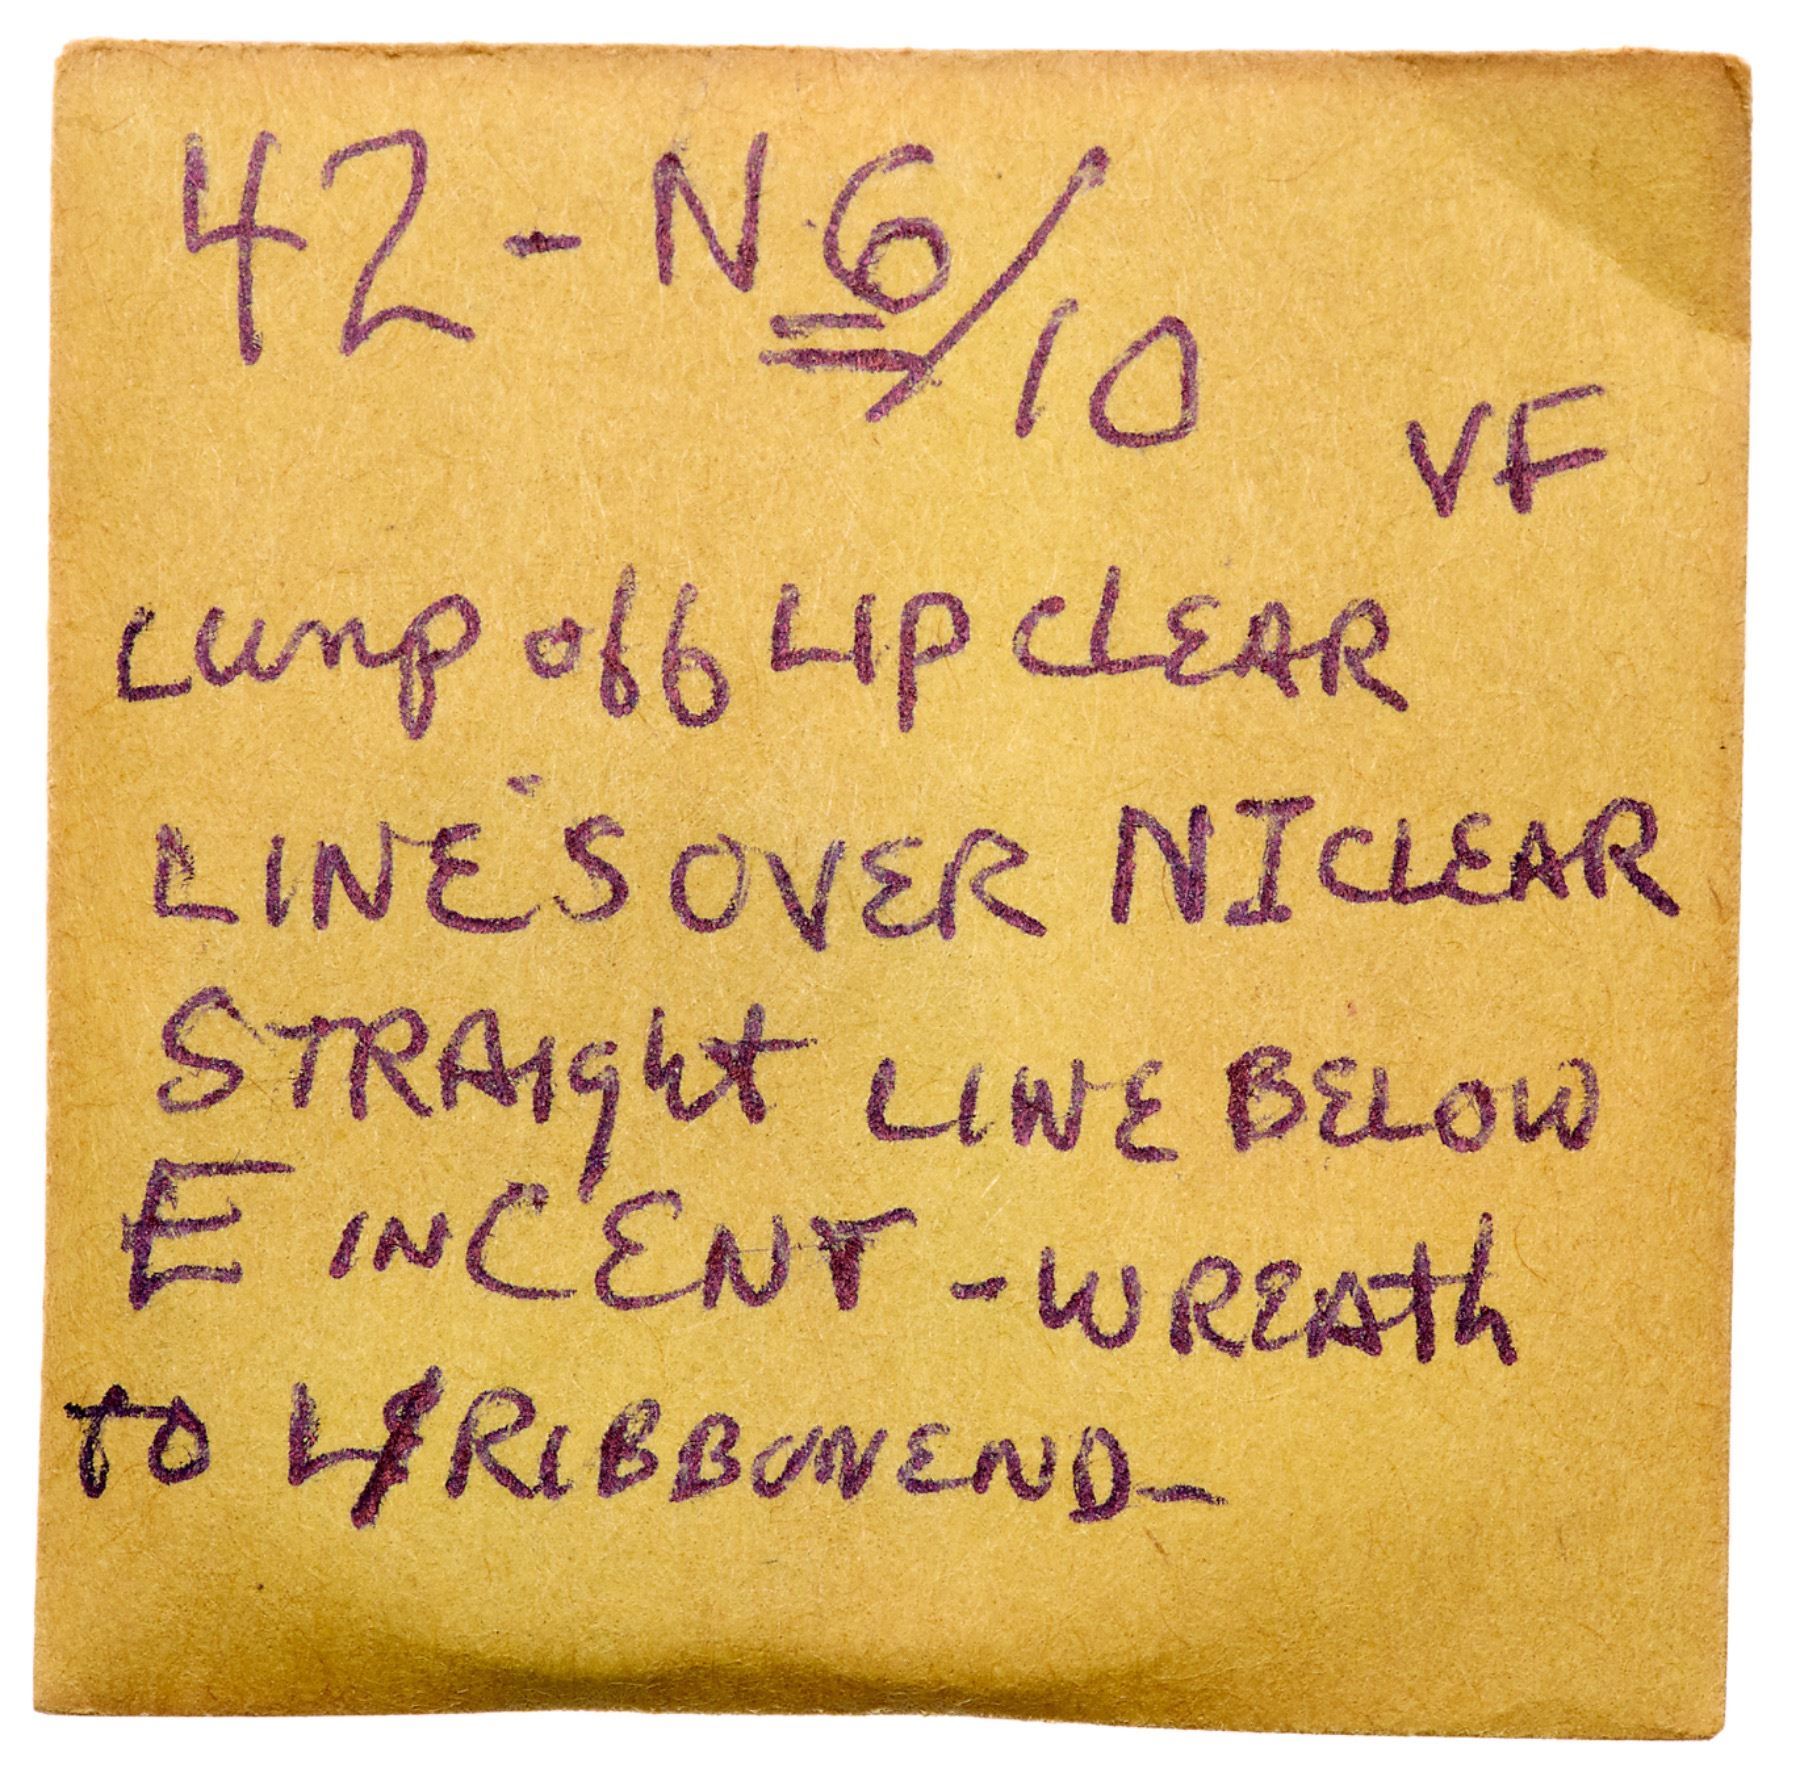 42 - N6/10
VF
Lump off LIP CLEAR
LINES OVER NI CLEAR
STRAIght LINE BELOW
E IN CENT - WREATh
TO L/RIBBON END-